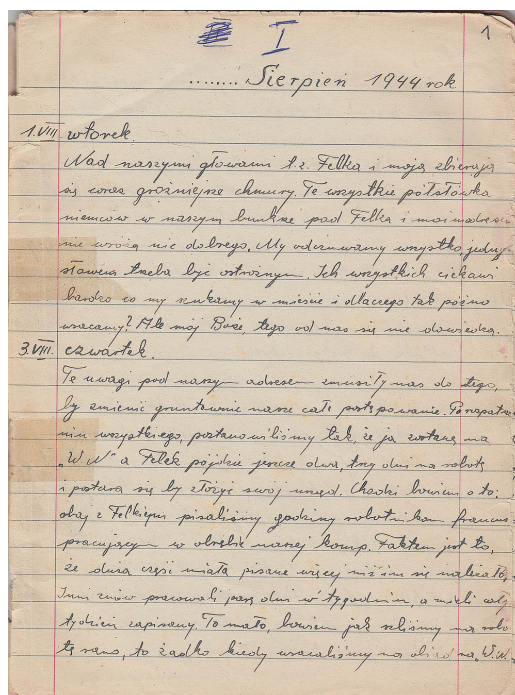 I
1
........ Sierpień 1944 rok
1.VIII wtorek.
Nad naszymi głowami t.z. Felka i moją zbierają
się coraz groźniejsze chmury. Te wszystkie półsłówka
niemców w naszym bunkrze pod Felka i moim adresem
nie wróżą nic dobrego. My odczuwamy wszystko, jednym
słowem trzeba być ostrożnym. Ich wszystkich ciekawi
bardzo co my szukamy w mieście i dlaczego tak późno
wracamy? Ale mój Boże, tego od nas się nie dowiedzą.
3.VIII. czwartek.
Te uwagi pod naszym adresem zmusiły nas do tego,
by zmienić gruntownie nasze całe postępowanie. Po rozpatrze
niu wszystkiego, postanowiliśmy tak, że ja zostanę na
"W.N" a Felek pójdzie jeszcze dwa, trzy dni na robotę
i postara się by złożyć swój urząd. Chodzi bowiem o to;
obaj z Felkiem pisaliśmy godziny robotnikom francus.
pracującym w obrębie naszej komp. Faktem jest to,
że duża część miała pisane więcej niż im się należało,
Inni znów pracowali parę dni w tygodniu, a mieli cały
tydzień zapisany. To mało, bowiem jak szliśmy na robo
tę rano, to żadko kiedy wracaliśmy na obiad na "W.N.